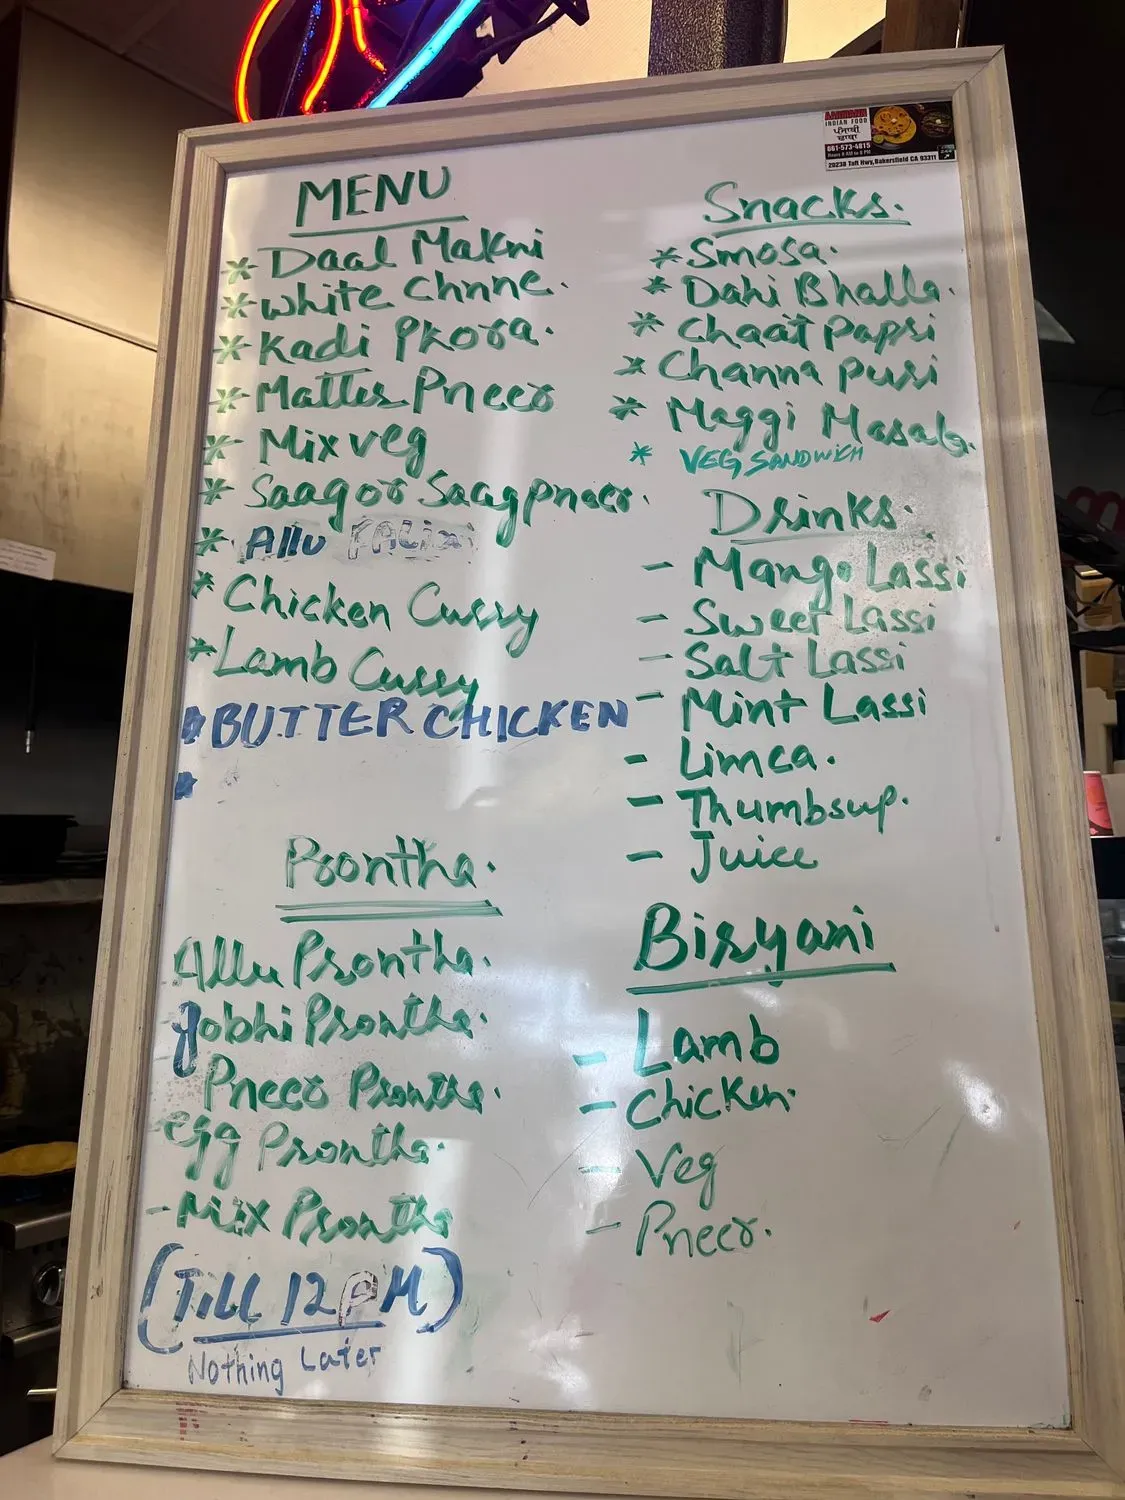 MENU
* Daal Makni
* White Chnne.
* Kadi Pkora.
* Matter Pneer
* Mix veg
* Saag or Saag pneer.
* Allu
* Chicken Curry
* Lamb Curry
* BUTTER CHICKEN
*
Prontha.
Allu Prontha.
gobhi Prontha.
Pneer Prontha.
egg Prontha.
- Mix Prontha
(TiLL 12 PM)
Nothing Later
AARMANN
INDIAN FOOD
ਪੰਜਾਬੀ
ਢਾਬਾ
661-573-4815
20238 Taft Hwy, Bakersfield CA 93311
Snacks.
* Smosa.
* Dahi Bhalla.
* Chaat Papri
* Channa Puri
* Maggi Masala.
* VEG SANDWICH
Drinks.
- Mango Lassi
- Sweet Lassi
- Salt Lassi
- Mint Lassi
- Limca.
- Thumbsup.
- Juice
Biryani
- Lamb
- Chicken.
- Veg
- Pneer.